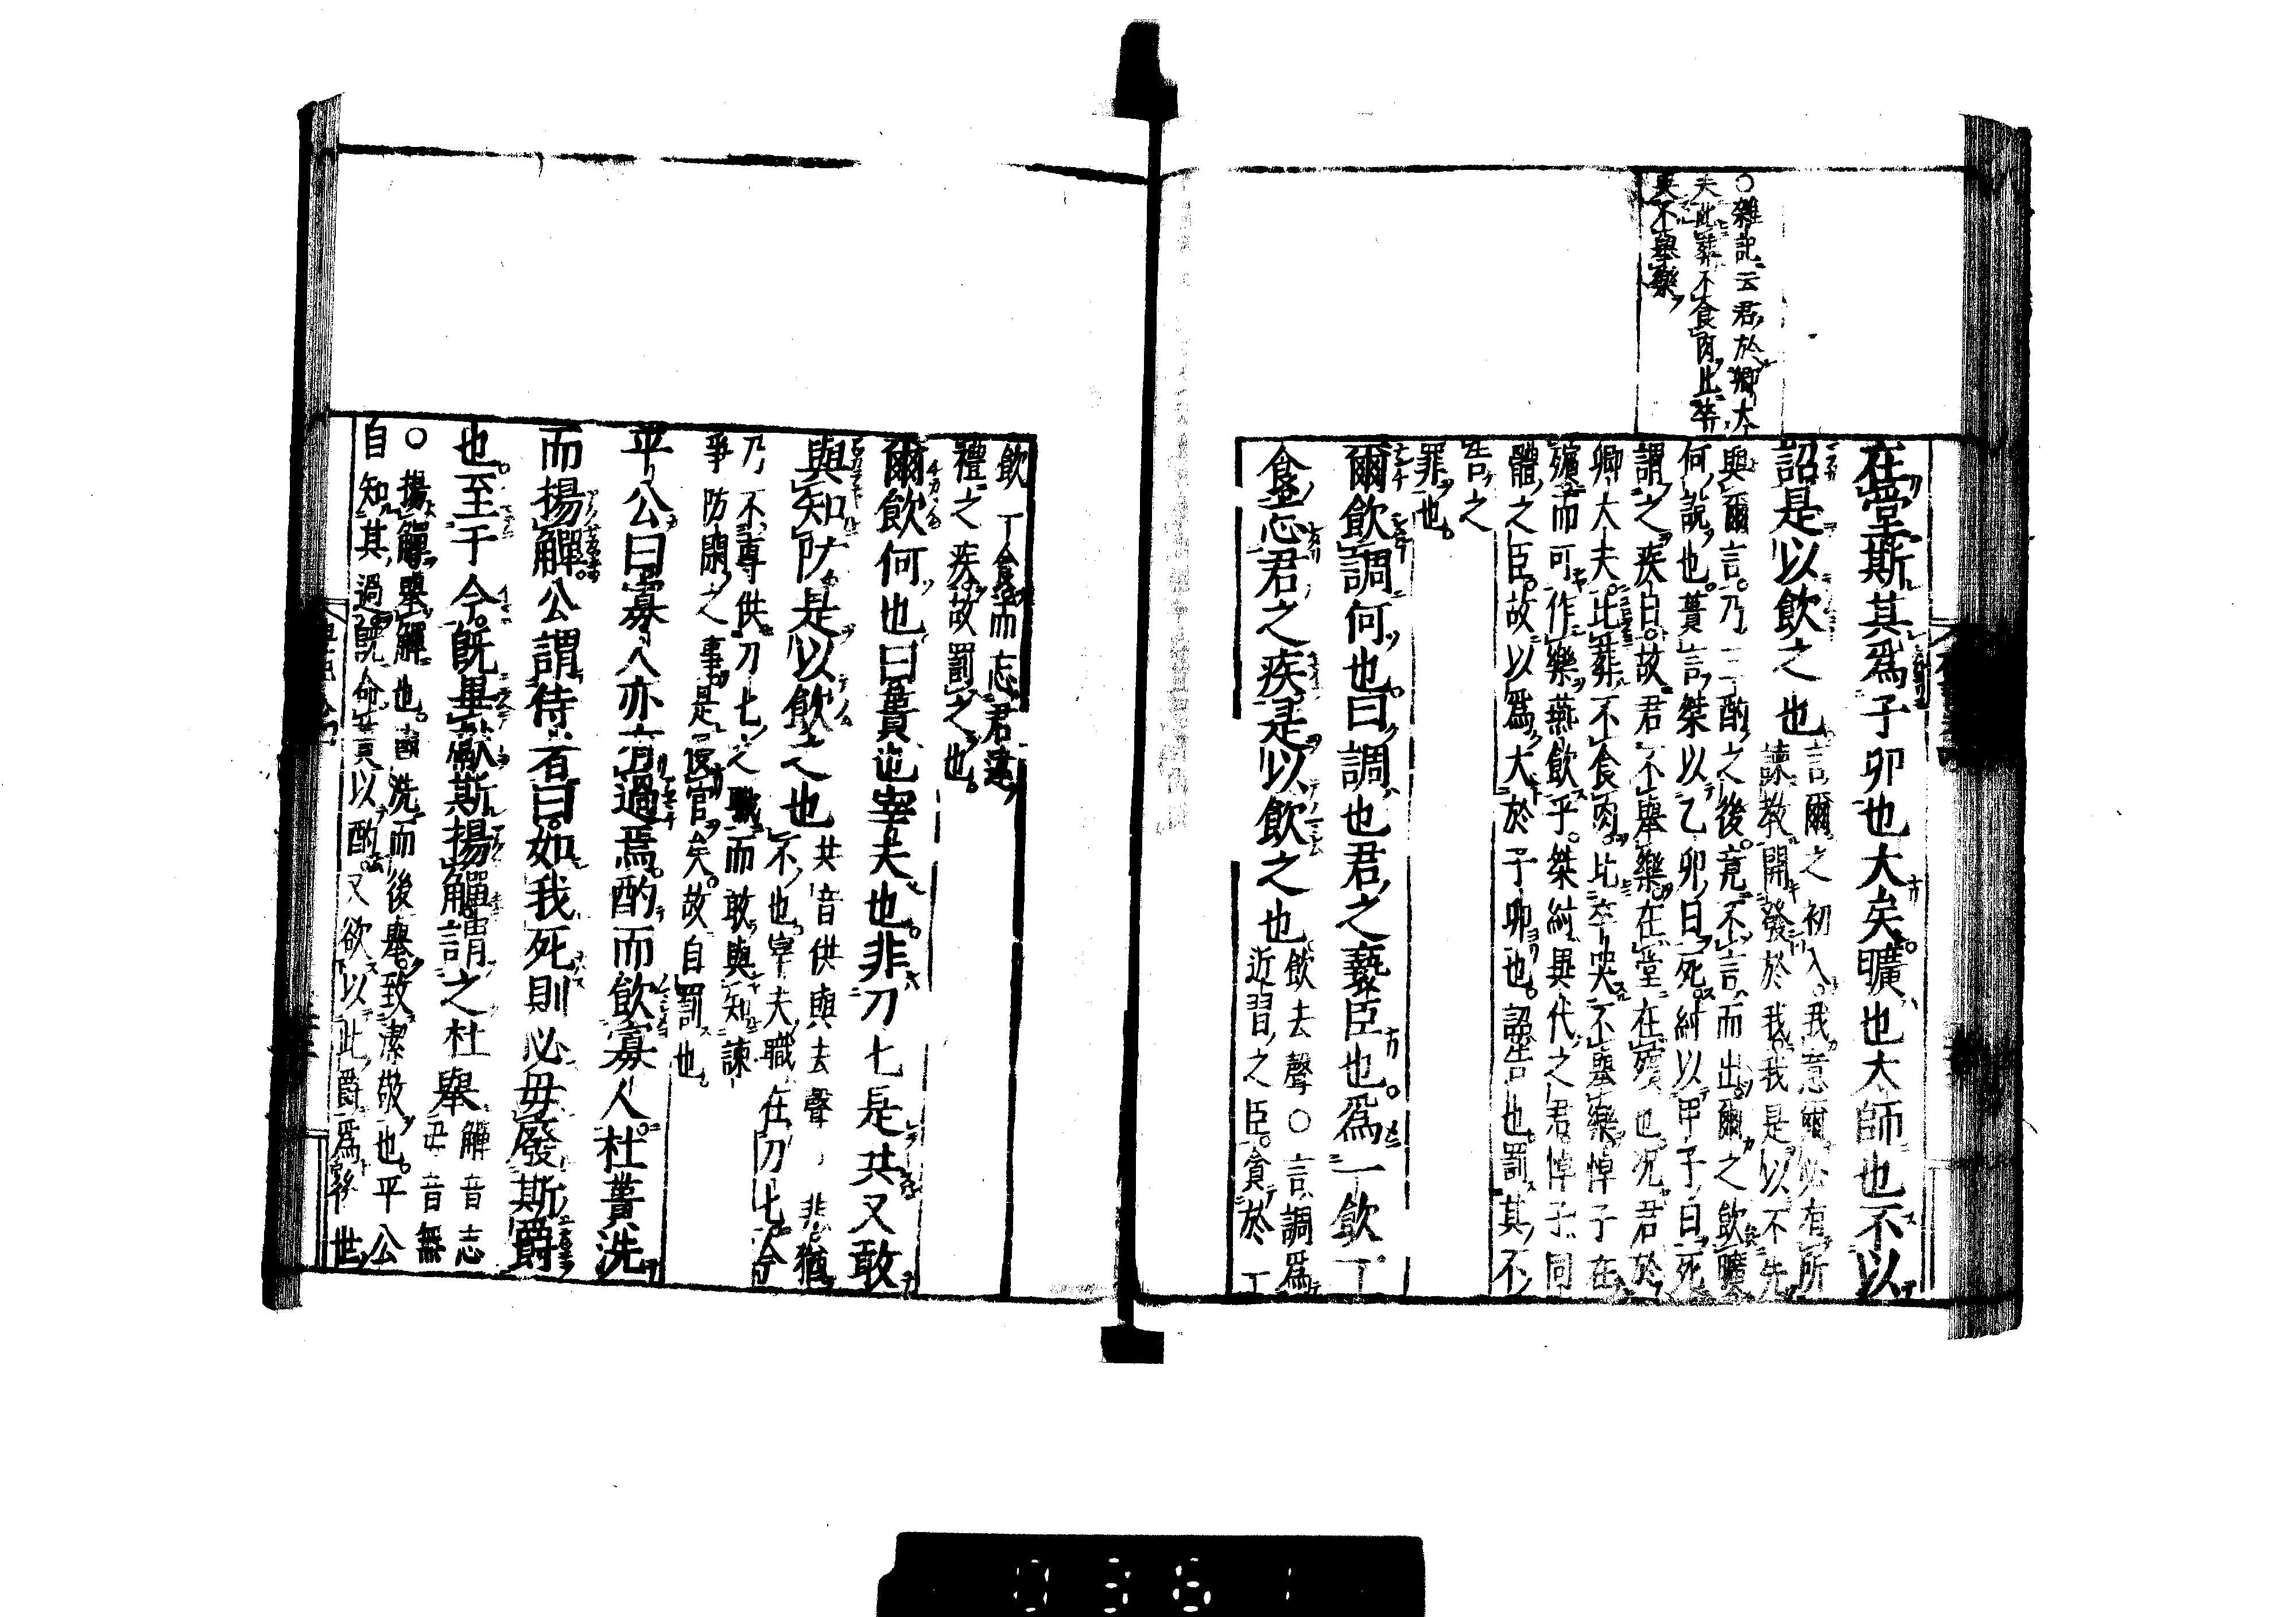 ○雜記云君於卿大
夫比葬不食肉比卒
哭不舉樂
在堂斯其爲子卯也大矣曠也大師也不以
詔是以飮之也
言爾之初入我意爾必有所
諫教開發於我我是以不先
與爾言乃三酌之後竟不言而出爾之飮曠
何說也蕢言桀以乙卯日死紂以甲子日死
謂之疾日故君不舉樂在堂在殯也况君於
卿大夫比葬不食肉比卒哭不舉樂悼子在
殯而可作樂燕飮乎桀紂異代之君悼子同
體之臣故以爲大於子卯也詔告也罰其不
告之
罪也
爾飮調何也曰調也君之褻臣也爲一飮一
食忘君之疾是以飮之也
飮去聲○言調爲
近習之臣貪於一
飮一食而忘君違
禮之疾故罰之也
爾飮何也曰蕢也宰夫也非刀匕是共又敢
與知防是以飮之也
共音供與去聲 非猶
不也宰夫職在刀匕今
乃不專供刀匕之職而敢與知諫
爭防閑之事是侵官矣故自罰也
平公曰寡人亦有過焉酌而飮寡人杜蕢洗
而揚觶公謂侍者曰如我死則必毋廢斯爵
也至于今旣畢獻斯揚觶謂之杜舉
觶音志
毋音無
○揚觶舉觶也盥洗而後舉致潔敬也平公
自知其過旣命蕢以酌又欲以此爵爲後世